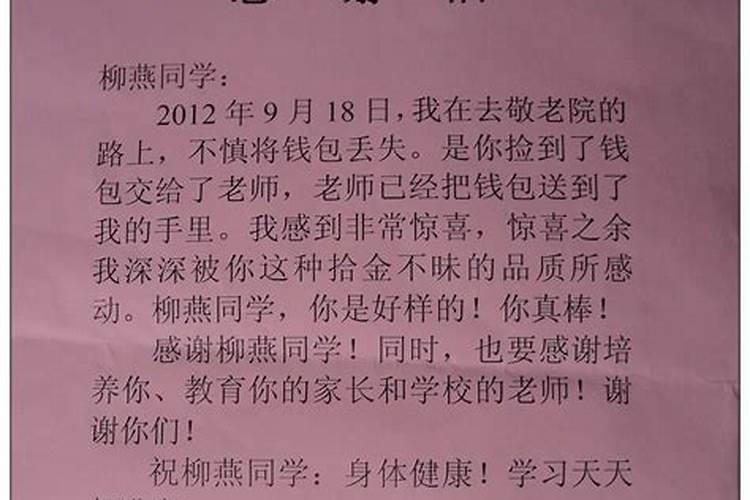 柳燕同学：
2012 年 9 月 18 日，我在去敬老院的
路上，不慎将钱包丢失。是你捡到了钱
包交给了老师，老师已经把钱包送到了
我的手里。我感到非常惊喜，惊喜之余
我深深被你这种拾金不昧的品质所感
动。柳燕同学，你是好样的！你真棒！
感谢柳燕同学！同时，也要感谢培
养你、教育你的家长和学校的老师！谢
谢你们！
祝柳燕同学：身体健康！学习天天